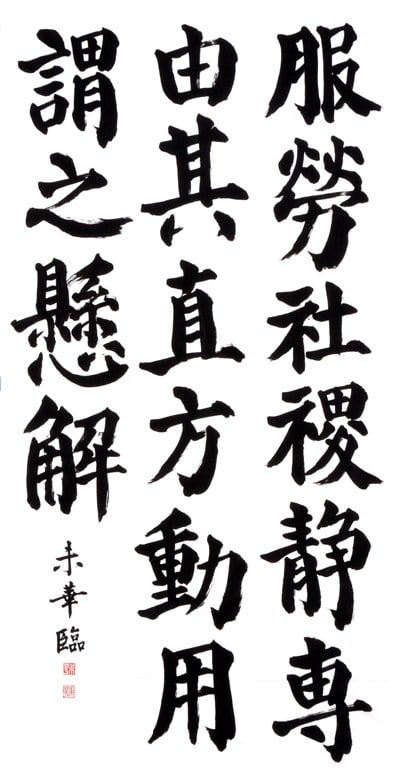 服勞社稷静専
由其直方動用
謂之懸解
未華臨